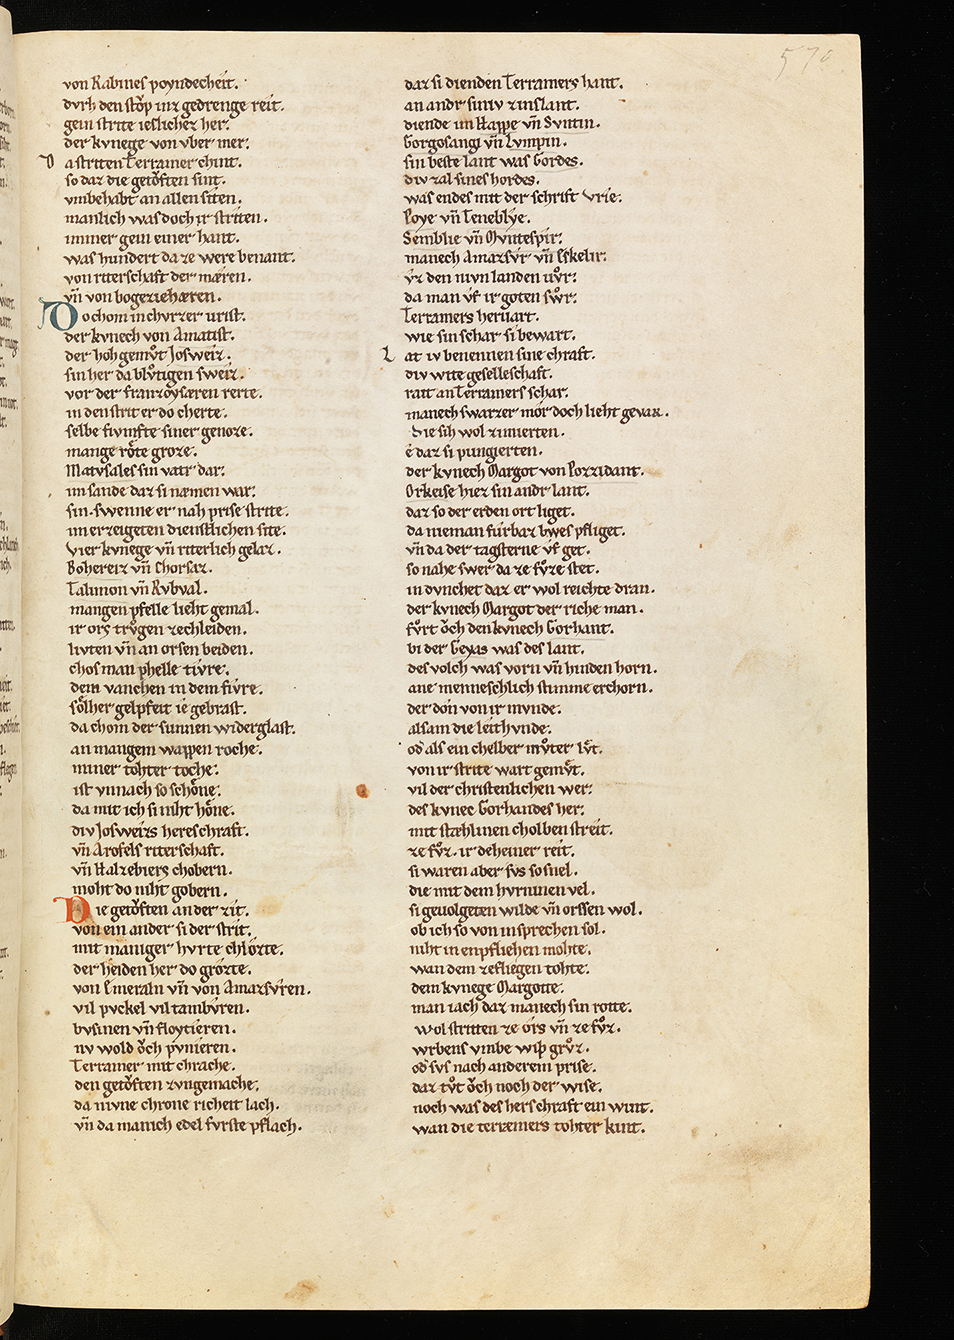 570
von Rabines poyndecheit.
dvrh den stͦp inz gedrenge reit.
gein strite ieslicher her:
der kvnege von vber mer:
D a striten Terramer chint.
so daz die getͦften sint.
vmbehabt an allen siten.
manlich was doch ir striten.
immer gein einer hant.
was hundert da ze were benant.
von riterschaft der mæren.
vn̄ von bogeziehæren.
D o chom in chvrzer vrist.
der kvnech von Amatist.
der hoh gemvͦt Josweiz.
sin her da blvͦtigen sweiz.
vor der franzoysæren rerte.
in den strit er do cherte.
selbe fivmfte siner genoze.
mange rôte groze.
Matvsales sin vater dar:
im sande daz si næmen war:
sin. swenne er nah prise strite.
im erzeigeten dienstlichen site.
Vier kvnege vn̄ riterlich gelaz.
Bohereiz vn̄ Chorsaz.
Talimon vn̄ Rvbval.
mangen pfelle lieht gemal.
ir ors trvͦgen zechleiden.
livten vn̄ an orsen beiden.
chos man phelle tivre.
dem vanchen in dem fivre.
sôlher gelpfeit ie gebrast.
da chom der sunnen widerglast.
an mangem wappen roche.
miner tohter toche.
ist vnnach so schône.
da mit ich si niht hône.
div Josweizs hereschraft.
vn̄ Arofels riterschaft.
vn̄ Halzebiers chobern.
moht do niht gobern.
D ie getͦften an der zit.
von ein ander si der strit.
mit maniger hvrte chlozte.
der heiden her do grozte.
von Emeraln vn̄ von Amazsvren.
vil pvckel vil tambvren.
bvsinen vn̄ floytieren.
nv wold ͦch pvnieren.
Terramer mit chrache.
den getͦften zvngemache.
da nivne chrone richeit lach.
vn̄ da manich edel fvrste pflach.
daz si dienden Terramers hant.
an andr siniv zinslant.
diende im Happe vn̄ Svntin.
Gorgosangi vn̄ Lvmpin.
sin beste lant was Gordes.
div zal sines hordes.
was endes mit der schrift vrie.
Poye vn̄ Teneblye.
Semblie vn̄ Mvntespir:
manech Amazsvr vn̄ Eskelir:
vz den nivn landen vͦr:
da man vf ir goten swͦr:
Terramers hervart.
wie sin schar si bewart.
L at iv benennen sine chraft.
div wite geselleschaft.
rait an Terramers schar.
manech swarzer mor doch lieht gevar.
die sih wol zimierten.
e daz si pungierten.
der kvnech Margot von Pozzidant.
Orkeise hiez sin andr lant.
daz so der erden ort liget.
da nieman fürbaz bwes pfliget.
vn̄ da der tagsterne vf get.
so nahe swer da ze fvͦze stet.
in dvnchet daz er wol reichte dran.
der kvnech Margot der riche man.
fvͦrt ͦch den kvnech Gorhant.
bi der Geyas was des lant.
des volch was vorn vn̄ hinden horn.
ane menneschlich stimme erchorn.
der don von ir mvnde.
alsam die leithvnde.
od als ein chelber mvͦter lvͦt.
von ir strite wart gemvͤt.
vil der christenlichen wer:
des kvnec Gorhandes her:
mit stæhlinen cholben streit.
ze fvͦz. ir deheiner reit.
si waren aber svs so snel.
die mit dem hvrninen vel.
si gevolgeten wilde vn̄ orssen wol.
ob ich so von in sprechen sol.
niht in enpfliehen mohte.
wan dem zefliegen tohte.
dem kvnege Margotte.
man iach daz manech sin rotte.
wol stritten ze ors vn̄ ze fvͦz.
wrbens vmbe wip grvͦz.
od svs nach anderem prise.
daz tvͦt ͦch noch der wise.
noch was des herschraft ein wint.
wan die terræmers tohter kint.